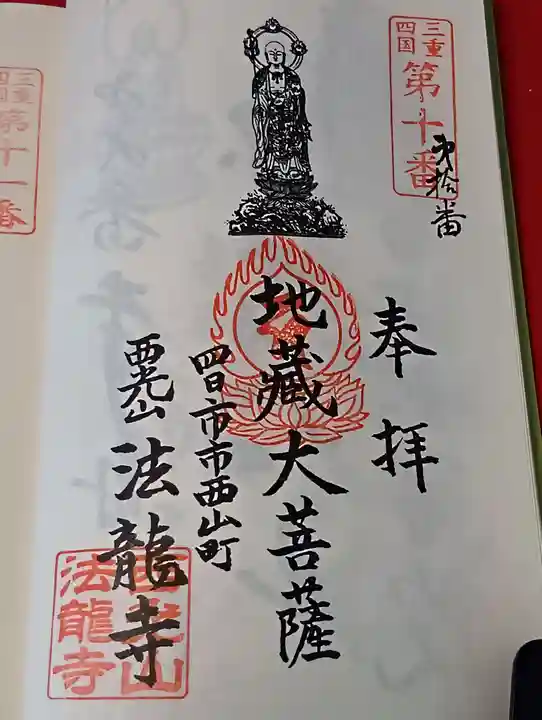 三重
四国
第十番
第拾番
奉拝
地蔵大菩薩
四日市市西山町
西光山
法龍寺
西光山
法龍寺
三重
四国
第十一番